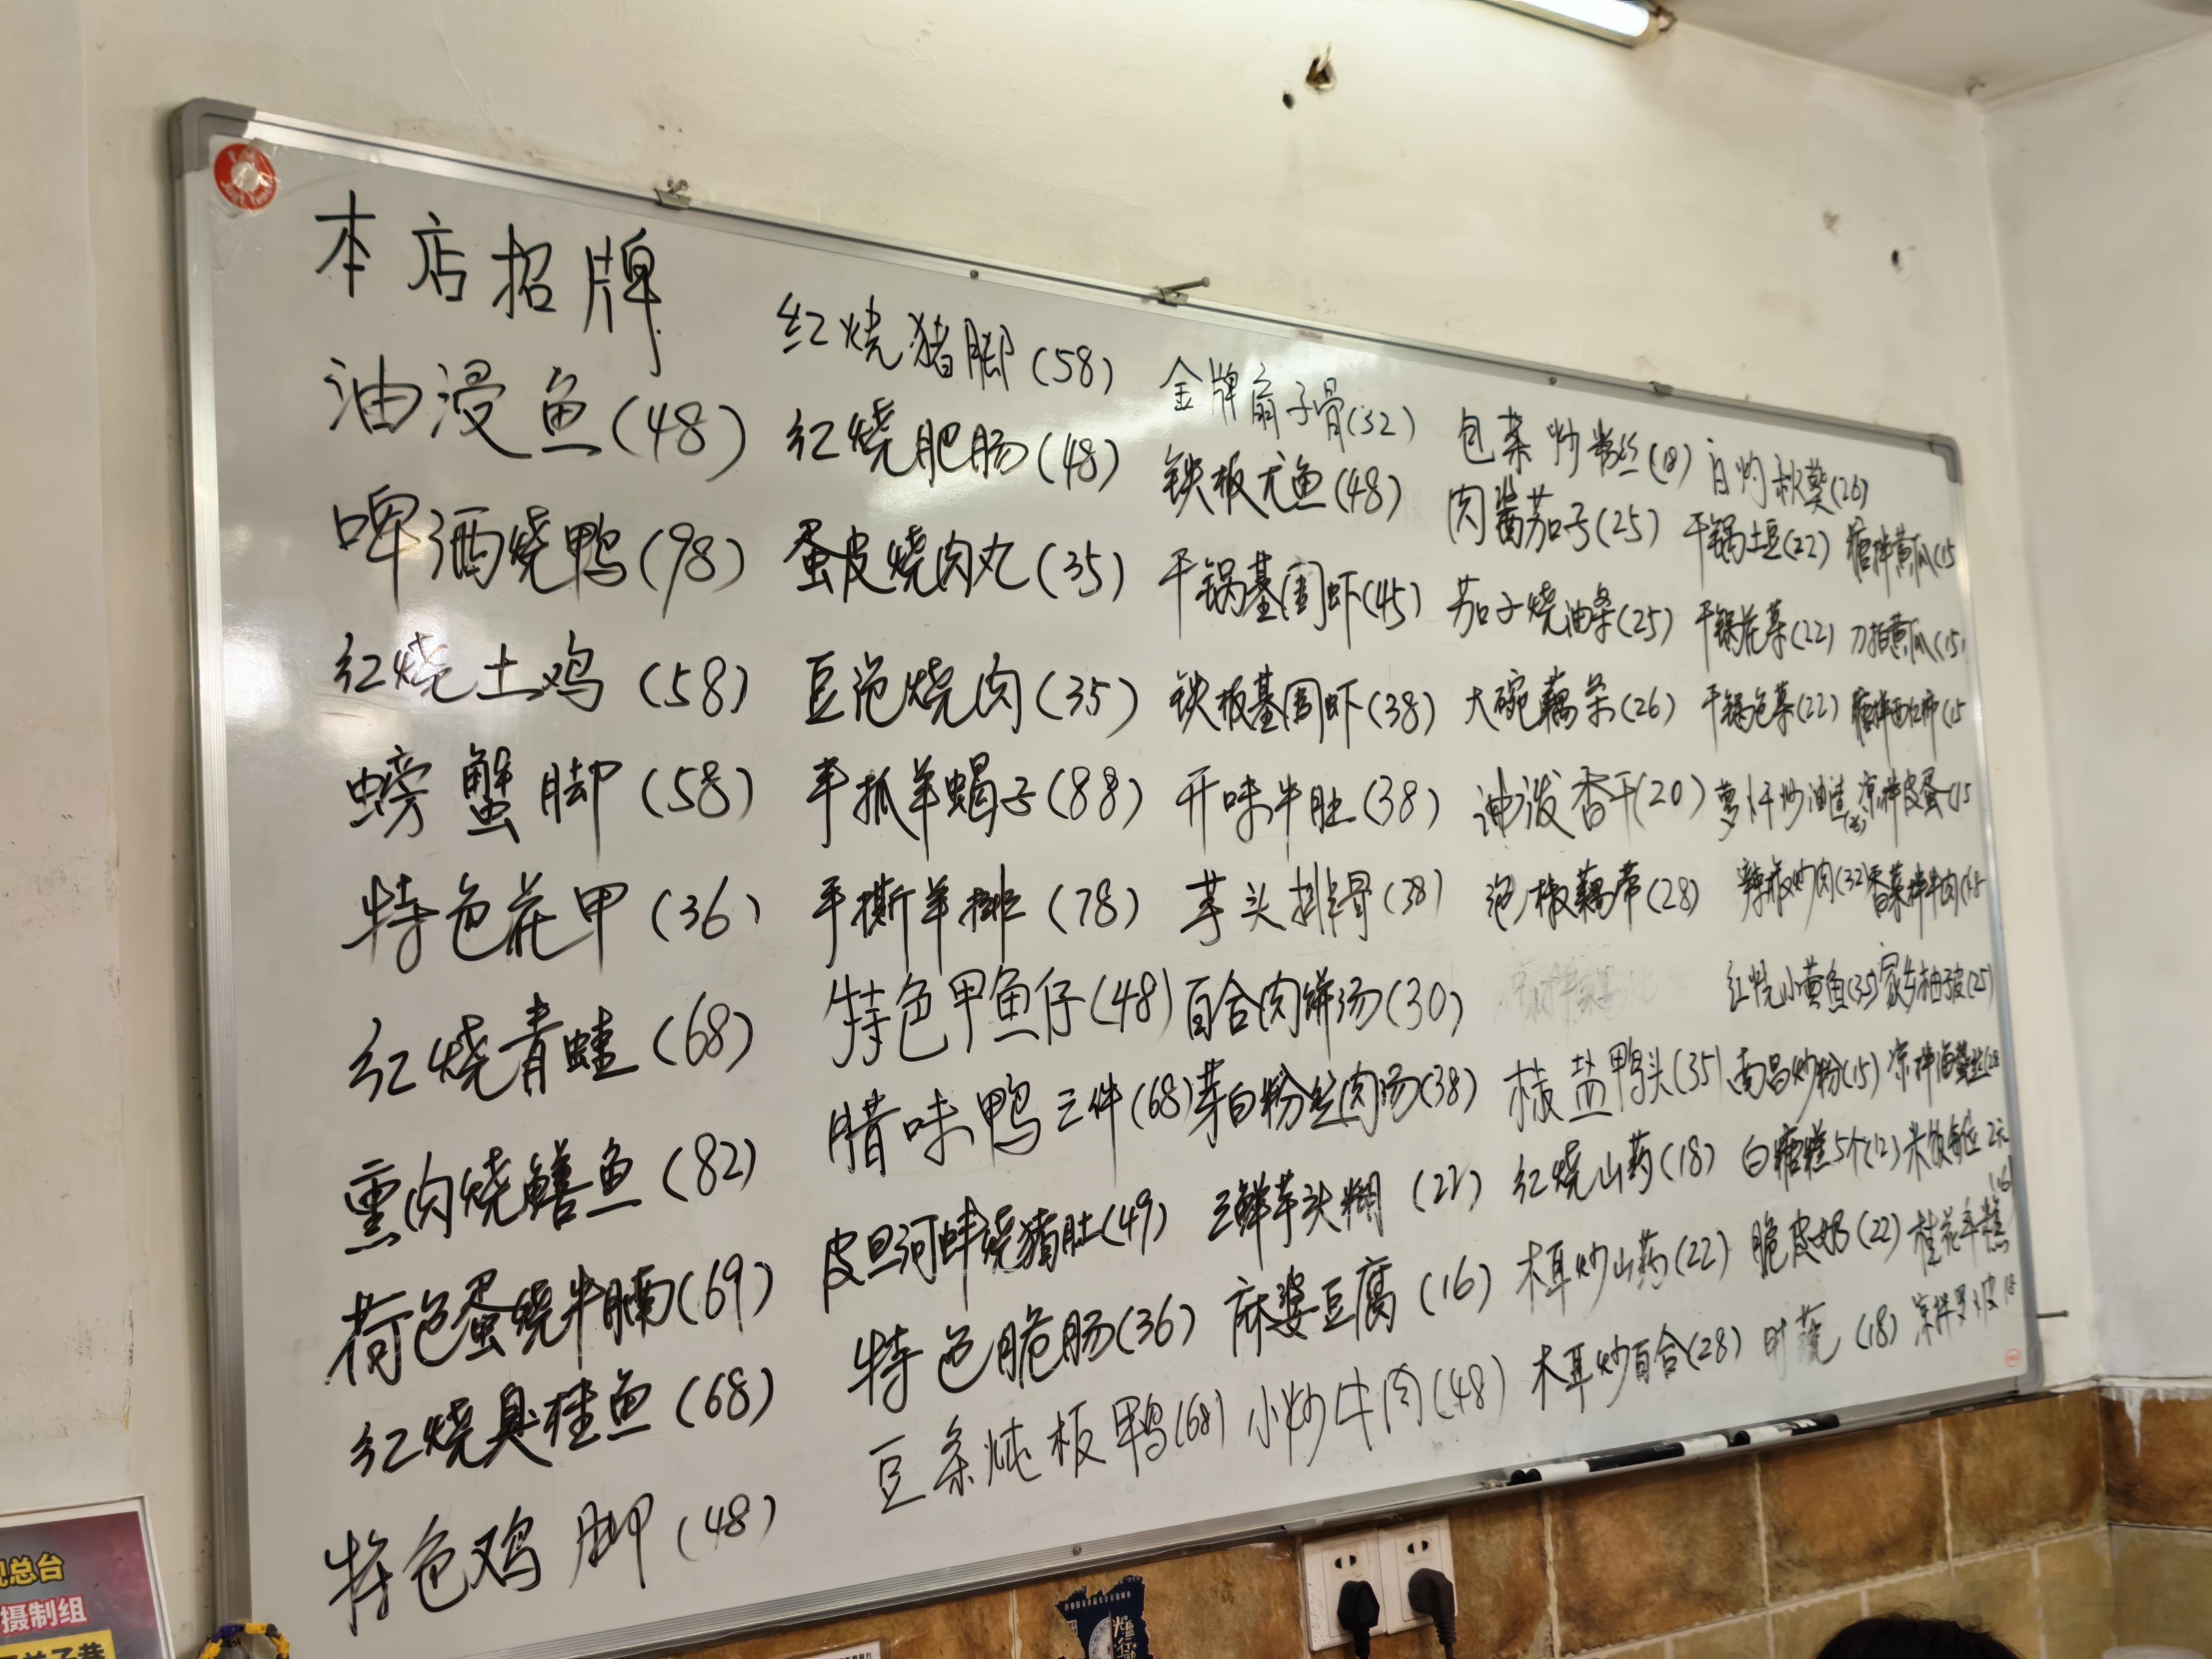 本店招牌
油浸鱼(48)
啤酒烧鸭(98)
红烧土鸡(58)
螃蟹脚(58)
特色花甲(36)
红烧青蛙(68)
熏肉烧鳝鱼(82)
荷包蛋烧牛腩(69)
红烧臭桂鱼(68)
特色鸡脚(48)
红烧猪脚(58)
红烧肥肠(48)
蛋皮烧肉丸(35)
豆泡烧肉(35)
手抓羊蝎子(88)
手撕羊排(78)
特色甲鱼仔(48)
腊味鸭三件(68)
皮旦河蚌烧猪肚(49)
特色脆肠(36)
豆条炖板鸭(68)
金牌扇子骨(32)
铁板尤鱼(48)
干锅基围虾(45)
铁板基围虾(38)
开味牛肚(38)
芋头排骨(38)
百合肉饼汤(30)
茅白粉丝肉汤(38)
三鲜芋头糊(22)
麻婆豆腐(16)
小炒牛肉(48)
包菜炒粉丝(18)
肉酱茄子(25)
茄子烧油条(25)
大碗藕条(26)
油泼香干(20)
泡椒藕带(28)
椒盐鸭头(35)
红烧山药(18)
木耳炒山药(22)
木耳炒百合(28)
白灼秋葵(26)
干锅土豆(22)
干锅花菜(22)
干锅包菜(22)
萝卜干炒油渣
辣椒炒肉(32)
红烧小黄鱼(35)
南昌炒粉(15)
白糖糕5个(12)
脆皮奶(22)
时蔬(18)
糖拌黄瓜(15
刀拍黄瓜(15)
糖拌西红柿(15
凉拌皮蛋(15
香菜拌牛肉
家乡柚子皮(25)
凉拌海蜇丝
米饭每位2元
桂花年糕(16)
凉拌
总台
摄制组